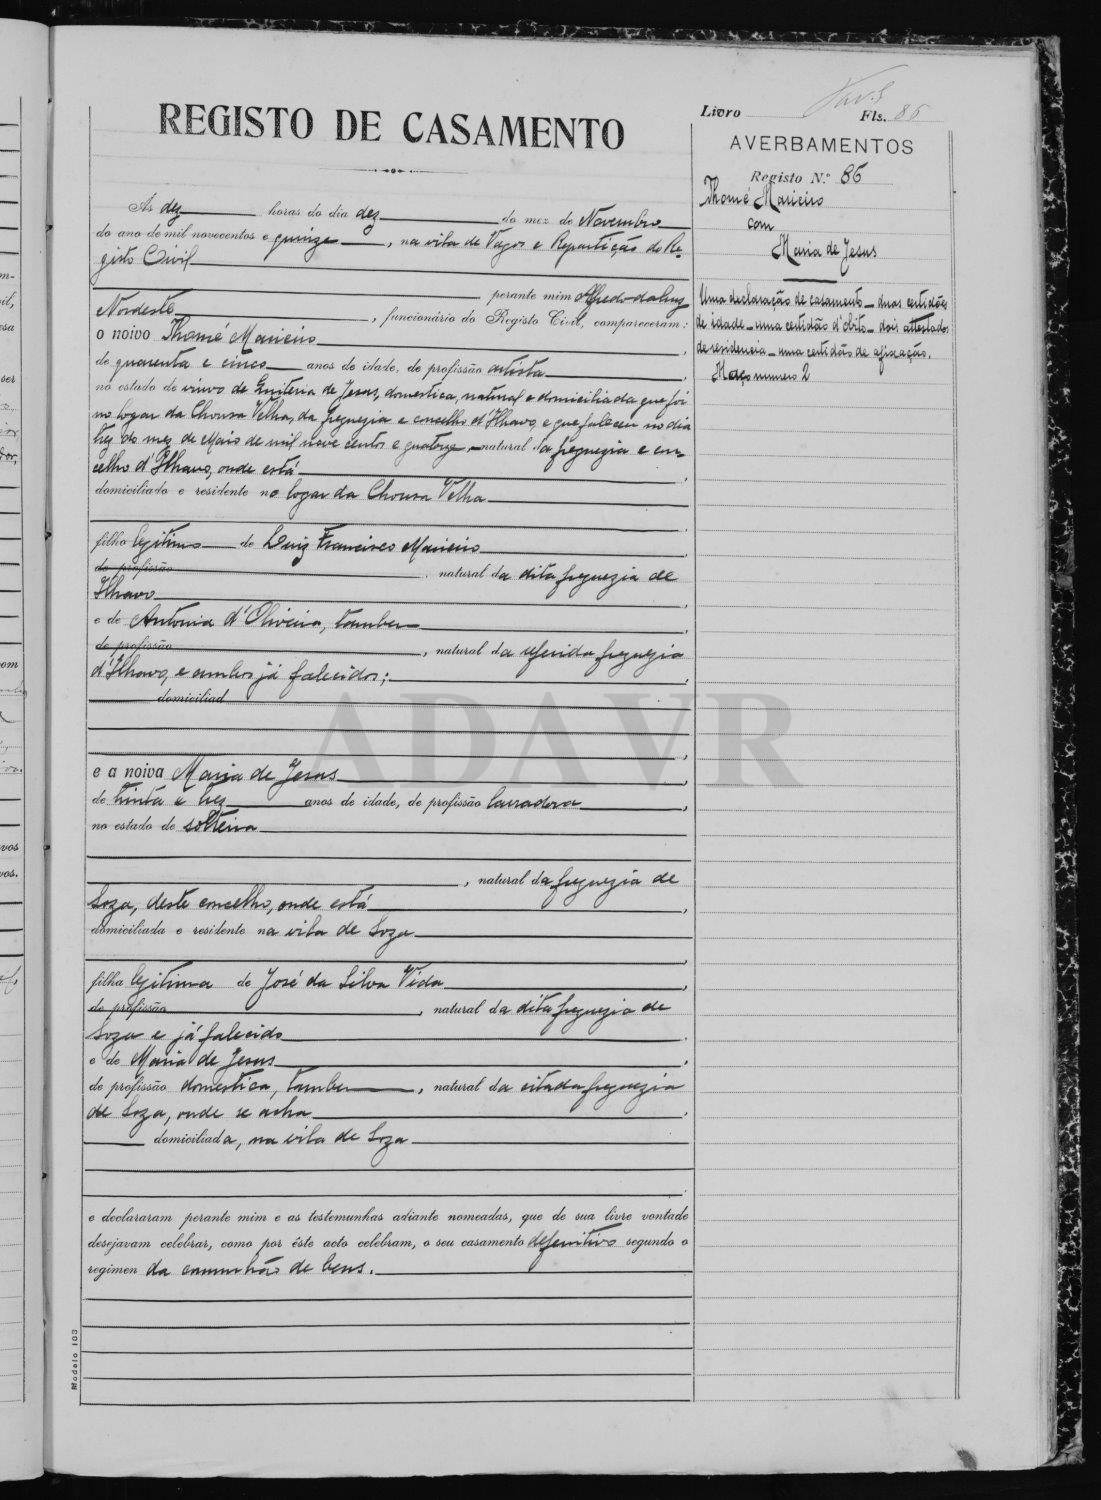 REGISTO DE CASAMENTO
Livro
Fls. 86
AVERBAMENTOS
Registo N.º 86
Thomé Marieiro
com
Maria de Jesus
Uma declaração de casamento - duas certidões
de idade - uma certidão d'obito - dois attestados
de residencia - uma certidão de afixação.
Maço numero 2
Ás dez horas do dia dez do mez de Novembro
do ano de mil novecentos e quinze, na vila de Vagos e Repartição do Re-
gisto Civil
perante mim Alfredo da Cruz
Nordeste, funcionário do Registo Civil, compareceram:
o noivo Thomé Marieiro,
de quarenta e cinco anos de idade, de profissão artista,
no estado de viuvo de Quiteria de Jesus, domestica, natural e domiciliada que foi
no logar da Chousa Velha, da freguezia e concelho d'Ilhavo, e que faleceu no dia
trez do mez de Maio de mil nove centos e quatorze, natural da freguezia e con-
celho d'Ilhavo, onde está,
domiciliado e residente no logar da Chousa Velha
filho legitimo de Luiz Francisco Marieiro,
de profissão, natural da dita freguezia de
Ilhavo,
e de Antonia d'Oliveira, tambem,
de profissão, natural da referida freguezia
d'Ilhavo, e ambos já falecidos;
domiciliad
ADAVR
e a noiva Maria de Jesus,
de trinta e trez anos de idade, de profissão lavradora,
no estado de solteira
, natural da freguezia de
Soza, deste concelho, onde está,
domiciliada e residente na vila de Soza
filha legitima de José da Silva Vida,
de profissão, natural da dita freguezia de
Soza e já falecido,
e de Maria de Jesus,
de profissão domestica, tambem, natural da citada freguezia
de Soza, onde se acha,
domiciliada, na vila de Soza
e declararam perante mim e as testemunhas adiante nomeadas, que de sua livre vontade
desejavam celebrar, como por éste acto celebram, o seu casamento defenitivo segundo o
regimen da comunhão de bens.
Modelo 103